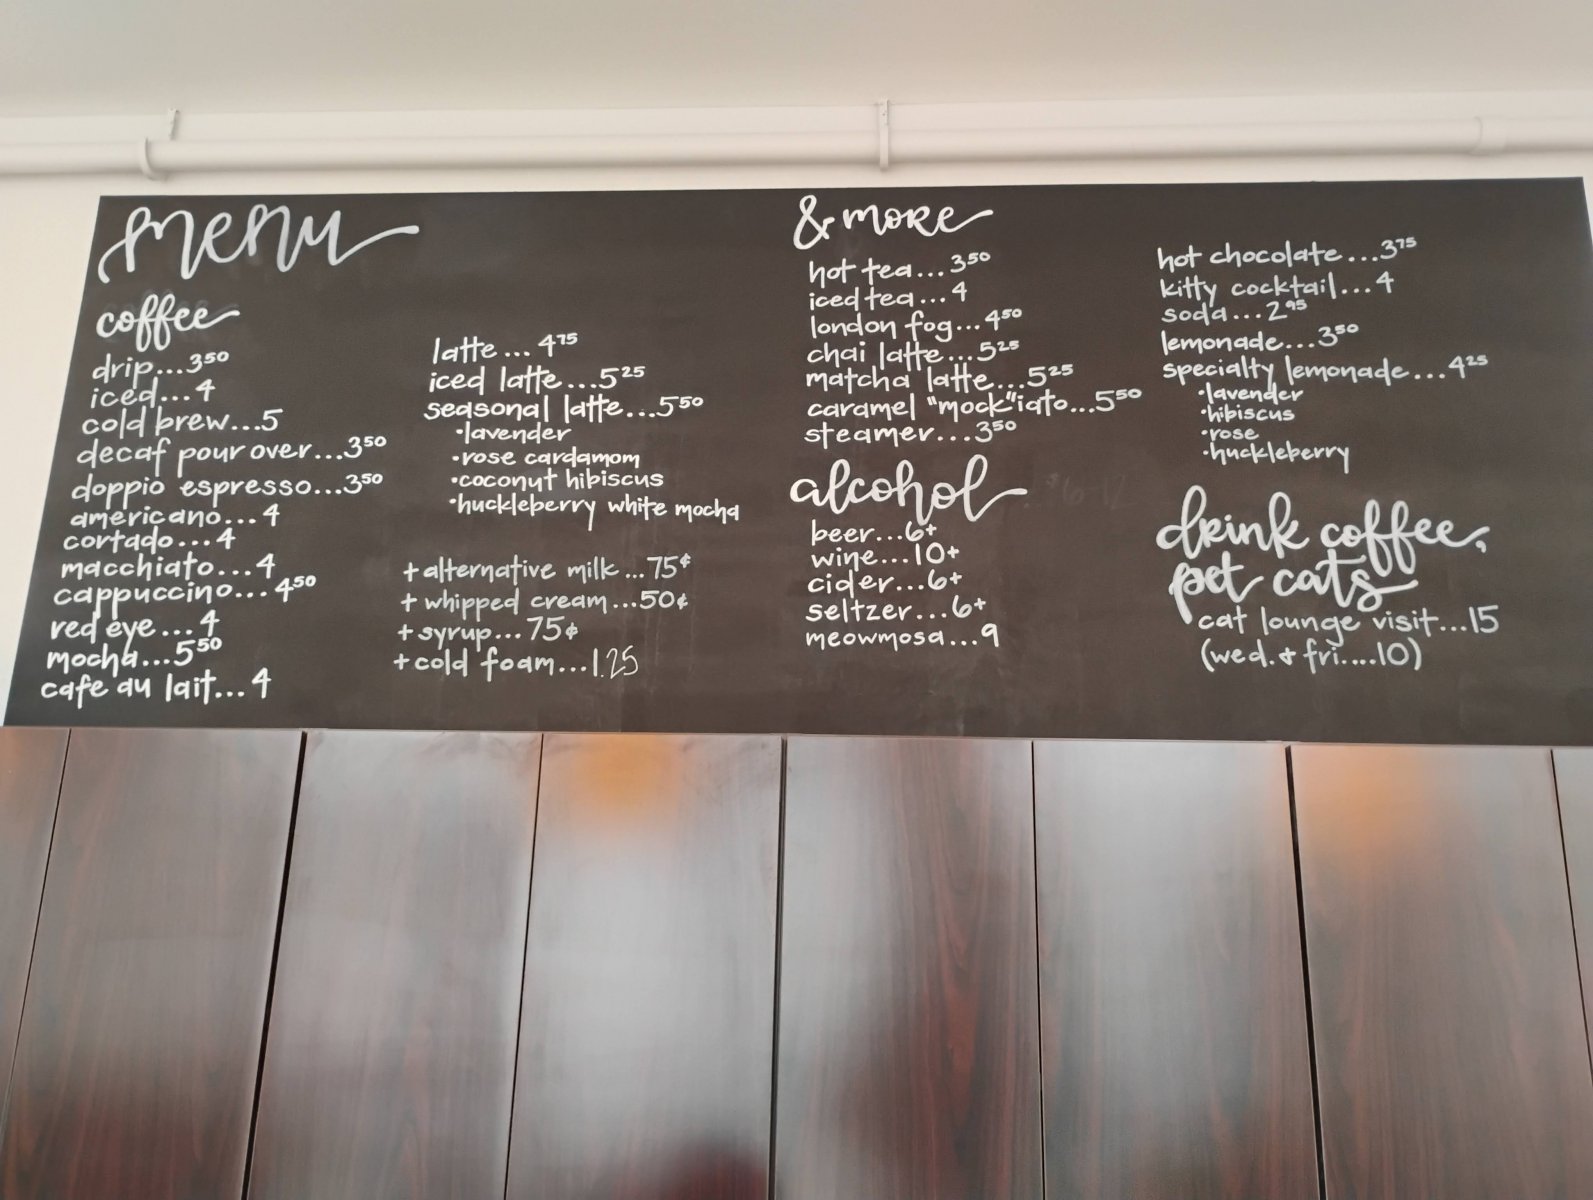 menu
coffee
drip...3⁵⁰
iced...4
cold brew...5
decaf pour over...3⁵⁰
doppio espresso...3⁵⁰
americano...4
cortado...4
macchiato...4
cappuccino...4⁵⁰
red eye...4
mocha...5⁵⁰
cafe au lait...4
latte...4⁷⁵
iced latte...5²⁵
seasonal latte...5⁵⁰
•lavender
•rose cardamom
•coconut hibiscus
•huckleberry white mocha
+alternative milk...75¢
+whipped cream...50¢
+syrup...75¢
+cold foam...1.25
& more
hot tea...3⁵⁰
iced tea...4
london fog...4⁵⁰
chai latte...5²⁵
matcha latte...5²⁵
caramel "mock"iato...5⁵⁰
steamer...3⁵⁰
alcohol
beer...6+
wine...10+
cider...6+
seltzer...6+
meowmosa...9
hot chocolate...3⁷⁵
kitty cocktail...4
soda...2⁹⁵
lemonade...3⁵⁰
specialty lemonade...4²⁵
•lavender
•hibiscus
•rose
•huckleberry
drink coffee,
pet cats
cat lounge visit...15
(wed. & fri....10)